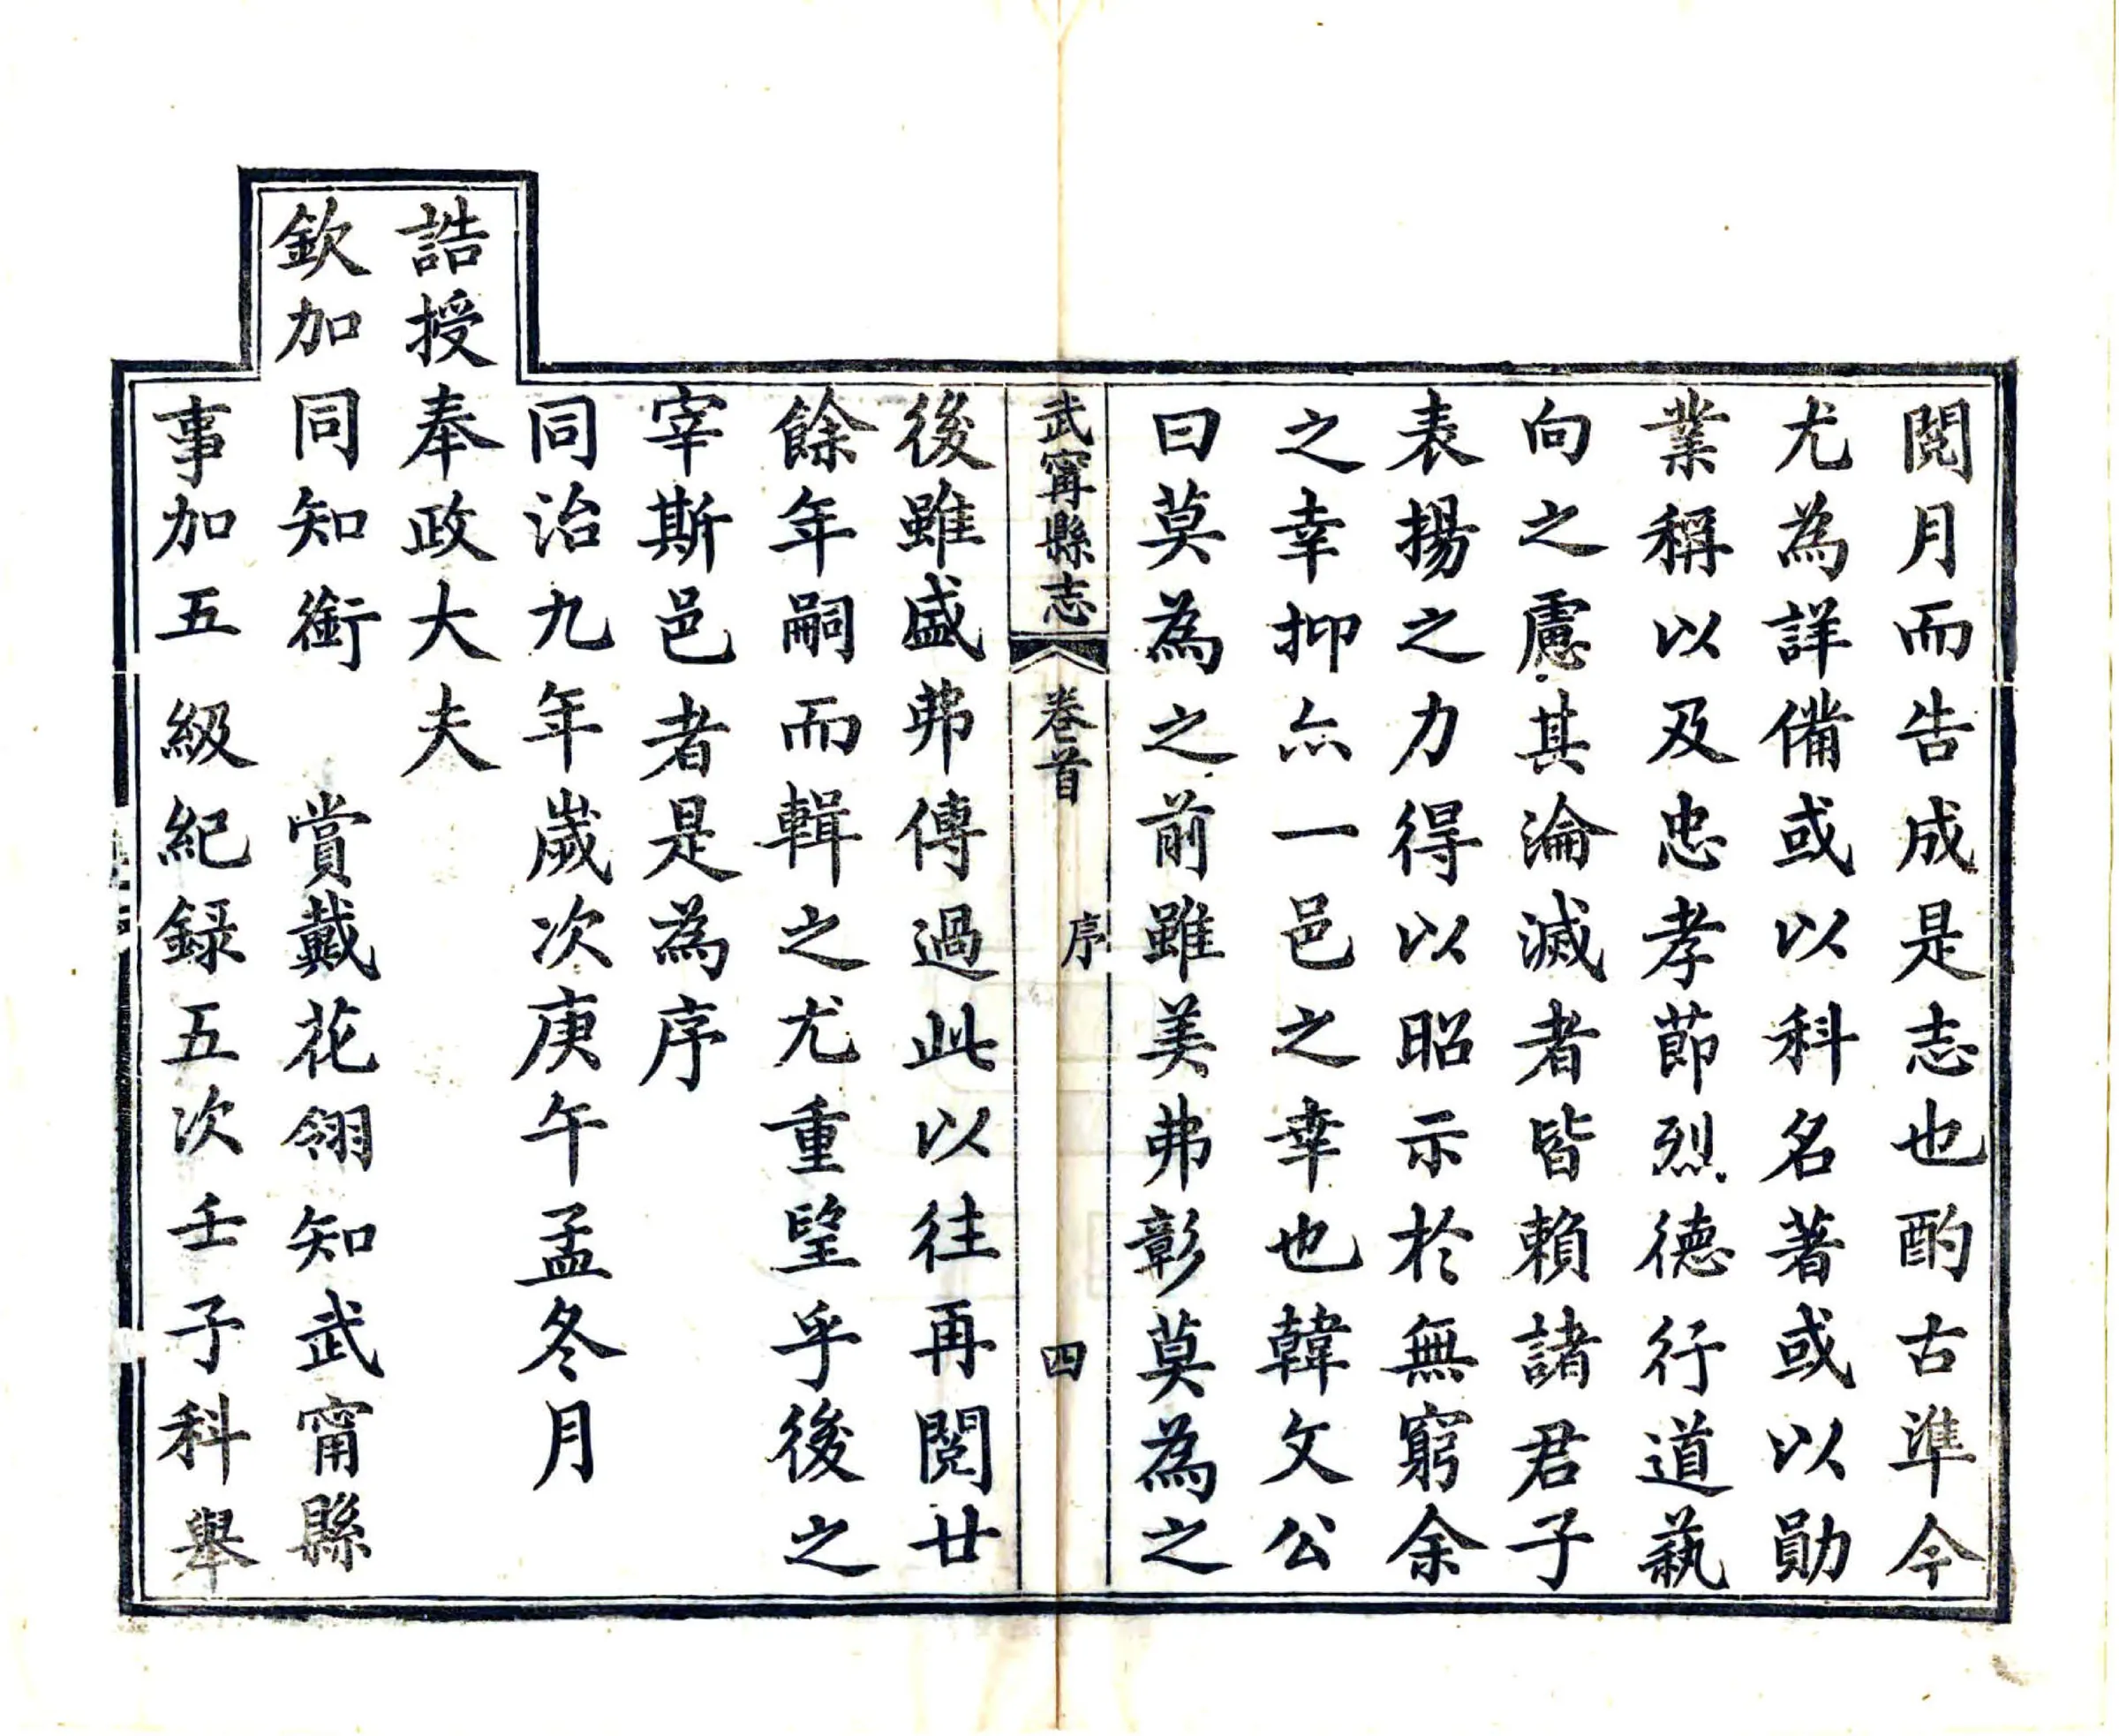 閱月而告成是志也酌古準今
尤為詳備或以科名著或以勛
業稱以及忠孝節烈德行道藝
向之慮其淪滅者皆賴諸君子
表揚之力得以昭示於無窮余
之幸抑亦一邑之幸也韓文公
曰莫為之前雖美弗彰莫為之
武寗縣志
卷首
序
四
後雖盛弗傳過此以往再閱廿
餘年嗣而輯之尤重望乎後之
宰斯邑者是為序
同治九年嵗次庚午孟冬月
誥授奉政大夫
欽加同知銜 賞戴花翎知武甯縣
事加五級紀録五次壬子科舉